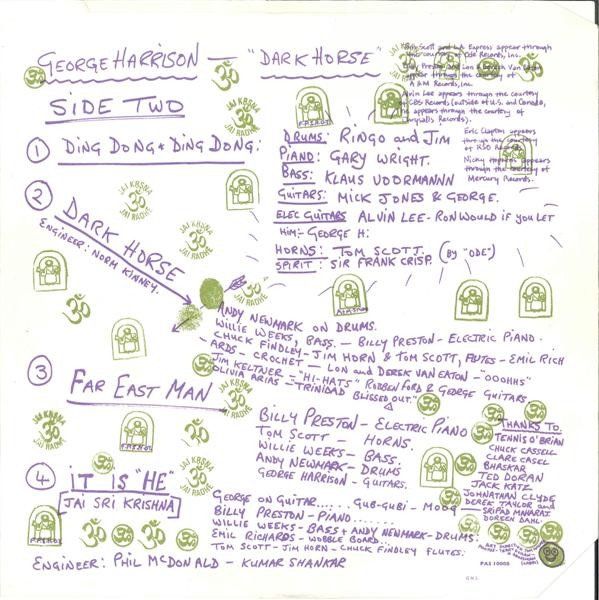 GEORGE HARRISON — "DARK HORSE"
SIDE TWO
Tom Scott and L.A. Express appear through
the courtesy of Ode Records, Inc.
Billy Preston and Lon & Derrek Van Eaton
appear through the courtesy of
A & M Records, Inc.
Alvin Lee appears through the courtesy
of CBS Records (outside of U.S. and Canada,
he appears through the courtesy of
Chrysalis Records).
Eric Clapton appears
through the courtesy
of RSO Records.
Nicky Hopkins appears
through the courtesy of
Mercury Records.
① DING DONG * DING DONG:
DRUMS: RINGO and JIM
PIANO: GARY WRIGHT.
BASS: KLAUS VOORMANNN
GUITARS: MICK JONES & GEORGE.
ELEC GUITARS ALVIN LEE - RON WOULD IF YOU LET
HIM:- GEORGE H:
HORNS: TOM SCOTT. (By "ODE")
SPIRIT: SIR FRANK CRISP.
② DARK HORSE
ENGINEER: NORM KINNEY.
ANDY NEWMARK ON DRUMS.
WILLIE WEEKS, BASS. — BILLY PRESTON - ELECTRIC PIANO.
CHUCK FINDLEY - JIM HORN & TOM SCOTT, FLUTES - EMIL RICH
-ARDS - CROCHET — LON and DEREK VAN EATON - "OOOHHS"
JIM KELTNER - "HI-HATS" ROBBEN FORD & GEORGE GUITARS.
OLIVIA ARIAS - "TRINIDAD BLISSED OUT."
③ FAR EAST MAN
BILLY PRESTON - ELECTRIC PIANO
TOM SCOTT - HORNS.
WILLIE WEEKS - BASS.
ANDY NEWMARK - DRUMS
GEORGE HARRISON - GUITARS.
THANKS TO:
TENNIS O'BRIAN
CHUCK CASSELL
CLARE CASEL
BHASKAR
TED DORAN
JACK KATZ
JOHNATHAN CLYDE
DEREK TAYLOR and
SRIPAD MAHARAJ
DOREEN DAHL.
④ IT IS "HE"
[JAI SRI KRISHNA]
GEORGE ON GUITAR...... GUB-GUBI - MOOG
BILLY PRESTON - PIANO......
WILLIE WEEKS - BASS + ANDY NEWMARK - DRUMS
EMIL RICHARDS - WOBBLE BOARD...
TOM SCOTT - JIM HORN - CHUCK FINDLEY FLUTES.
ENGINEER: PHIL MCDONALD - KUMAR SHANKAR
JAI KRSNA
ॐ
JAI RADHE
F.P.S.H.O.T.
PAS 10008